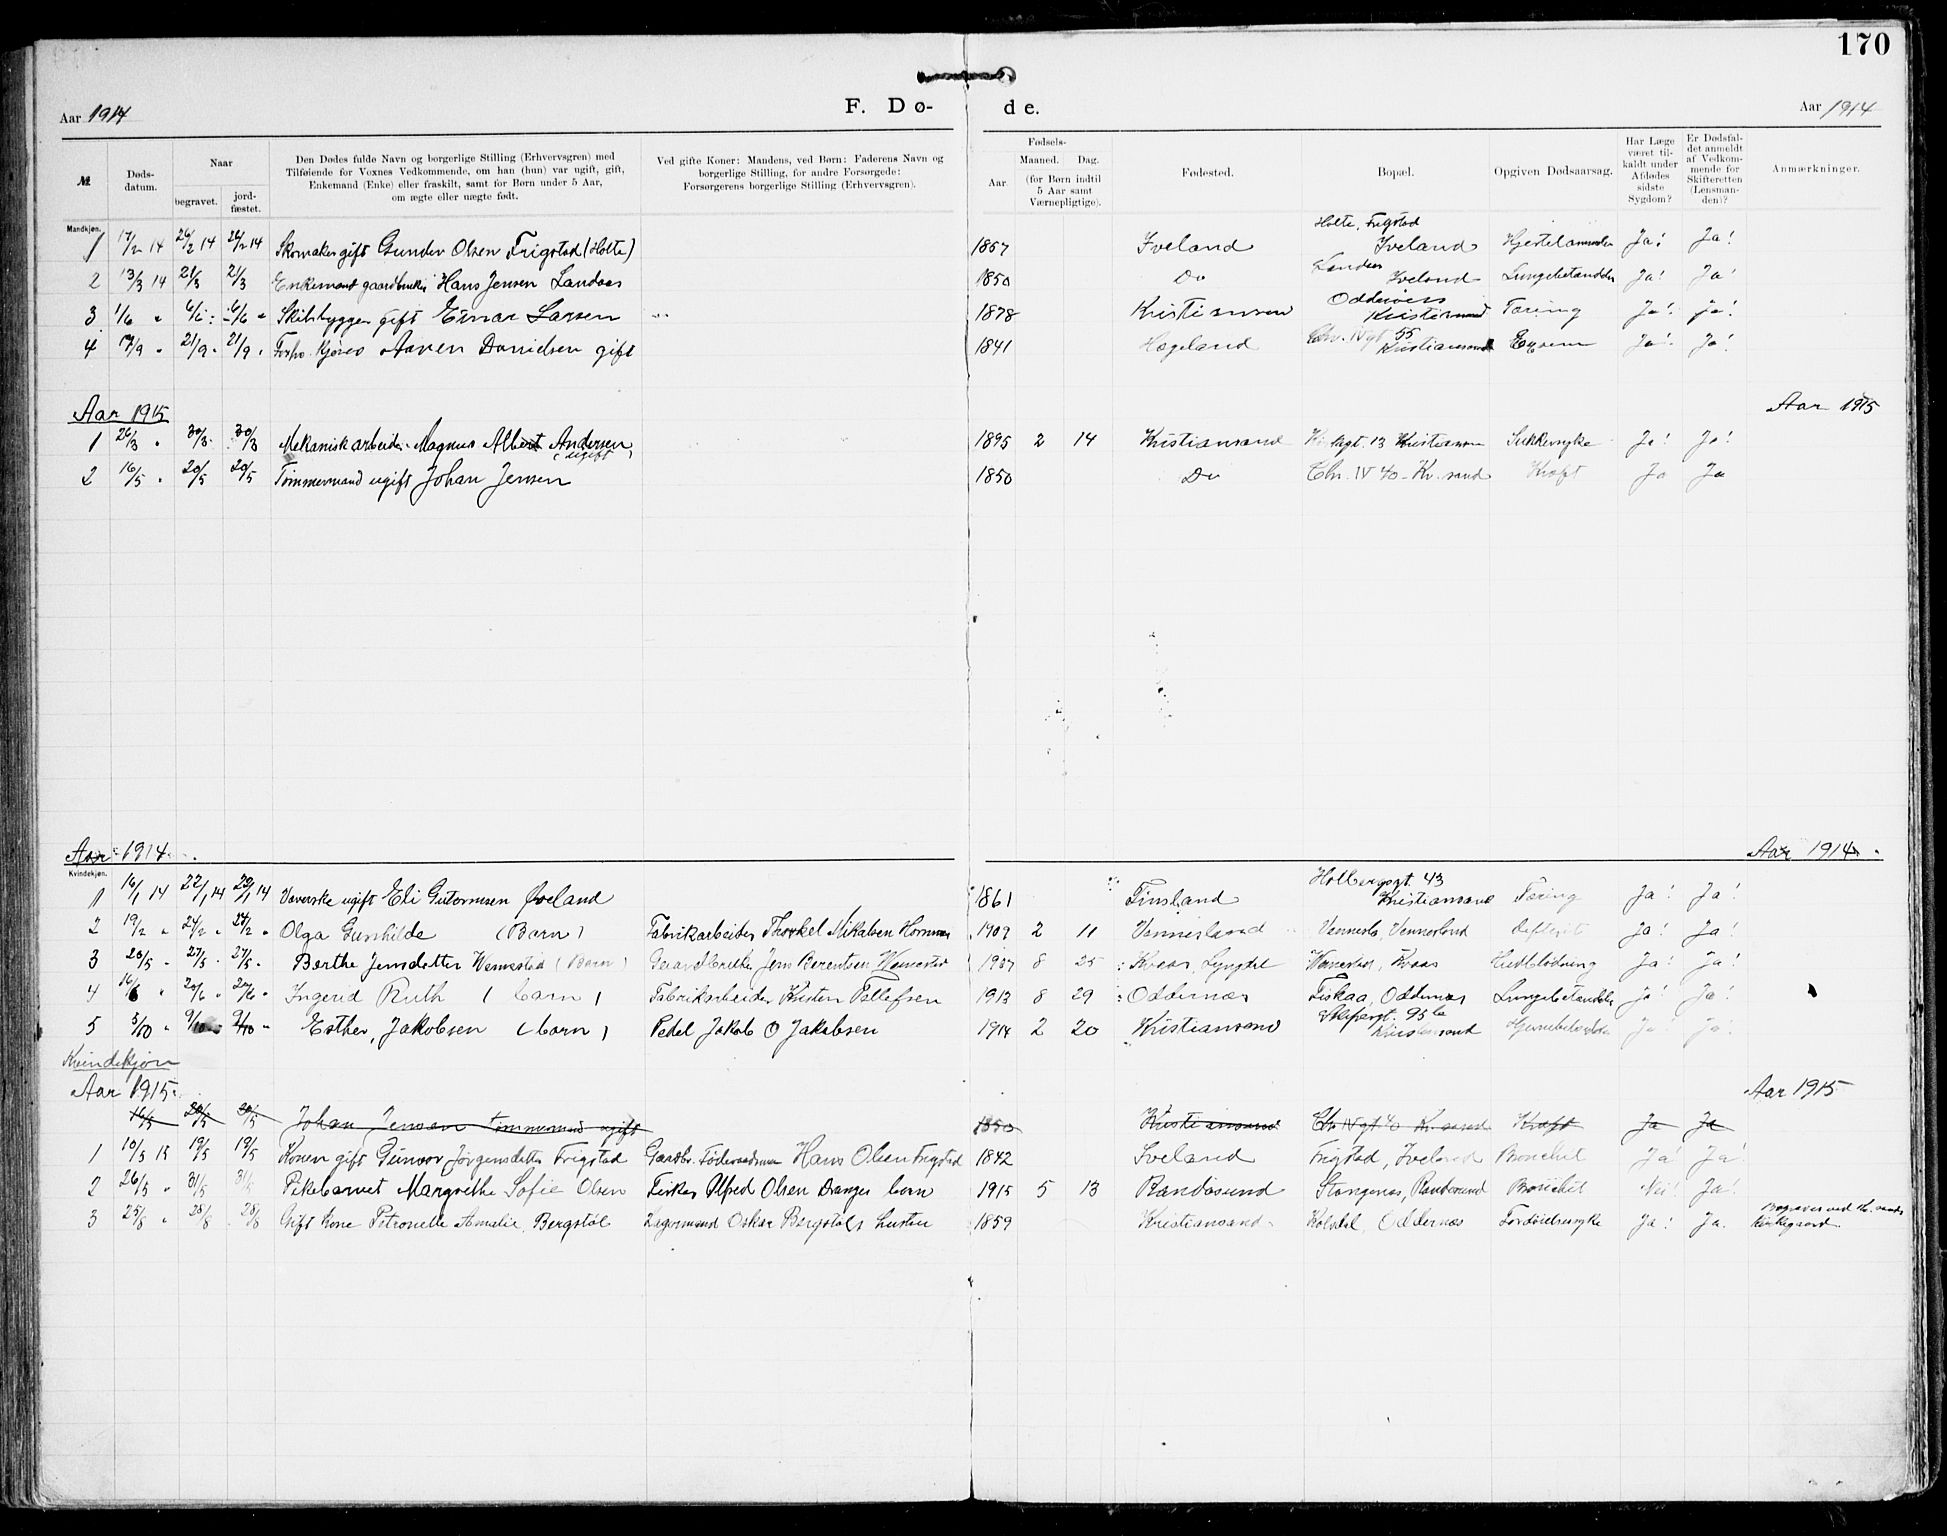 170
Aar 1914 F. Dø- de. Aar 1914
№ Døds-datum. Naar begravet. jord-fæstet. Den Dødes fulde Navn og borgerlige Stilling (Erhvervsgren) med Tilføiende for Voxnes Vedkommende, om han (hun) var ugift, gift, Enkemand (Enke) eller fraskilt, samt for Børn under 5 Aar, om ægte eller uægte født. Ved gifte Koner: Mandens, ved Børn: Faderens Navn og borgerlige Stilling, for andre Forsørgede: Forsørgerens borgerlige Stilling (Erhvervsgren). Fødsels- Aar. Maaned. Dag. (for Børn indtil 5 Aar samt Værnepligtige). Fødested. Bopæl. Opgiven Dødsaarsag. Har Læge været til-kaldt under Afdødes sidste Sygdom? Er Dødsfal-det anmeldt af Vedkom-mende for Skifteretten (Lensman-den)? Anmærkninger.
Mandkjøn.
1 17/2 14 26/2 14 26/2 14 Skomaker gift Gunder Olsen Frigstad (Holte) 1857 Iveland Holte, Frigstad Iveland Ja! Ja!
2 13/3 14 21/3 21/3 Enkemand gaardbruker Hans Jensen Landaas 1850 Do Landaas Iveland Lungebetændelse Ja! Ja!
3 1/6 " 6/6 6/6 " Skibsbygger gift Einar Larsen 1878 Kristiansand Odderøens Kristiansand Tæring Ja! Ja!
4 " 21/9 " 21/9 " Aanen Danielsen gift 1841 Hægeland Chr. IV gt 55 Kristiansand Ja! Ja!
Aar 1915 Aar 1915
1 26/3 " 30/3 30/3 Mekanisk arbeider Magnus Albert Andersen (ugift) 1895 2 14 Kristiansand 13 Kristiansan Sukkersyke Ja! Ja!
2 16/5 " 20/5 20/5 Tømmermand ugift Johan Jensen 1850 Do Chr. IV 40 - Kr. sand Kræft Ja Ja
Aar 1914 Aar 1914
Kvindekjøn.
1 16/1 14 22/1 14 22/1 14 Væverske ugift Eli Gutormsen Øveland 1861 Finsland Holbergsgt. 43 Kristiansand Tæring Ja! Ja!
2 19/2 " 24/2 " 24/2 " Olga Gunhilde (Barn) Fabrikarbeider Thorkel Mikalsen Homme 1909 2 11 Vennesland Vennesla, Vennesland Ja! Ja!
3 20/5 " 27/5 " 27/5 " Berthe Jensdatter Wemestad (Barn) Gaardbruker Jens Berentsen Wemestad 1907 8 25 Kvaas, Lyngdal Wemestad, Kvaas Ja! Ja!
4 16/6 " 20/6 " 20/6 " Ingerid Ruth (barn) Fabrikarbeider Kristen Tallefsen 1913 8 29 Oddernæs Fiskaa, Oddernæs Lungebetændelse Ja! Ja!
5 5/10 " 9/10 9/10 " Esther, Jakobsen (barn) Pedel Jakob O Jakobsen 1914 2 20 Kristiansand Kristiansand Ja! Ja!
Kvindekjøn
Aar 1915 Aar 1915
16/5 20/5 20/5 Johan Jensen tømmermand ugift 1850 Kristiansand Chr IV gt 40 Kr. sand Kræft Ja Ja
1 10/5 15 19/5 19/5 Konen gift Gunvor Jørgensdatter Frigstad Gaardbr. Føderaadsman Hans Olsen Frigstad 1842 Iveland Frigstad, Iveland Bronchit Ja! Ja!
2 26/5 " 31/5 31/5 Pikebarnet Margrethe Sofie Olsen Fisker Alfred Olsen Dranges barn 1915 5 13 Randøsund Stangenæs, Randøsund Bronchit Nei! Ja!
3 25/8 " 28/8 28/8 Gift Kone Petronelle Amalie Bergstøl Lagermand Oskar Bergstøls hustru 1859 Kristiansand Kolsdal, Oddernæs Fordøielsessyke Ja! Ja. Begraves ved Kr. sands Kirkegaard